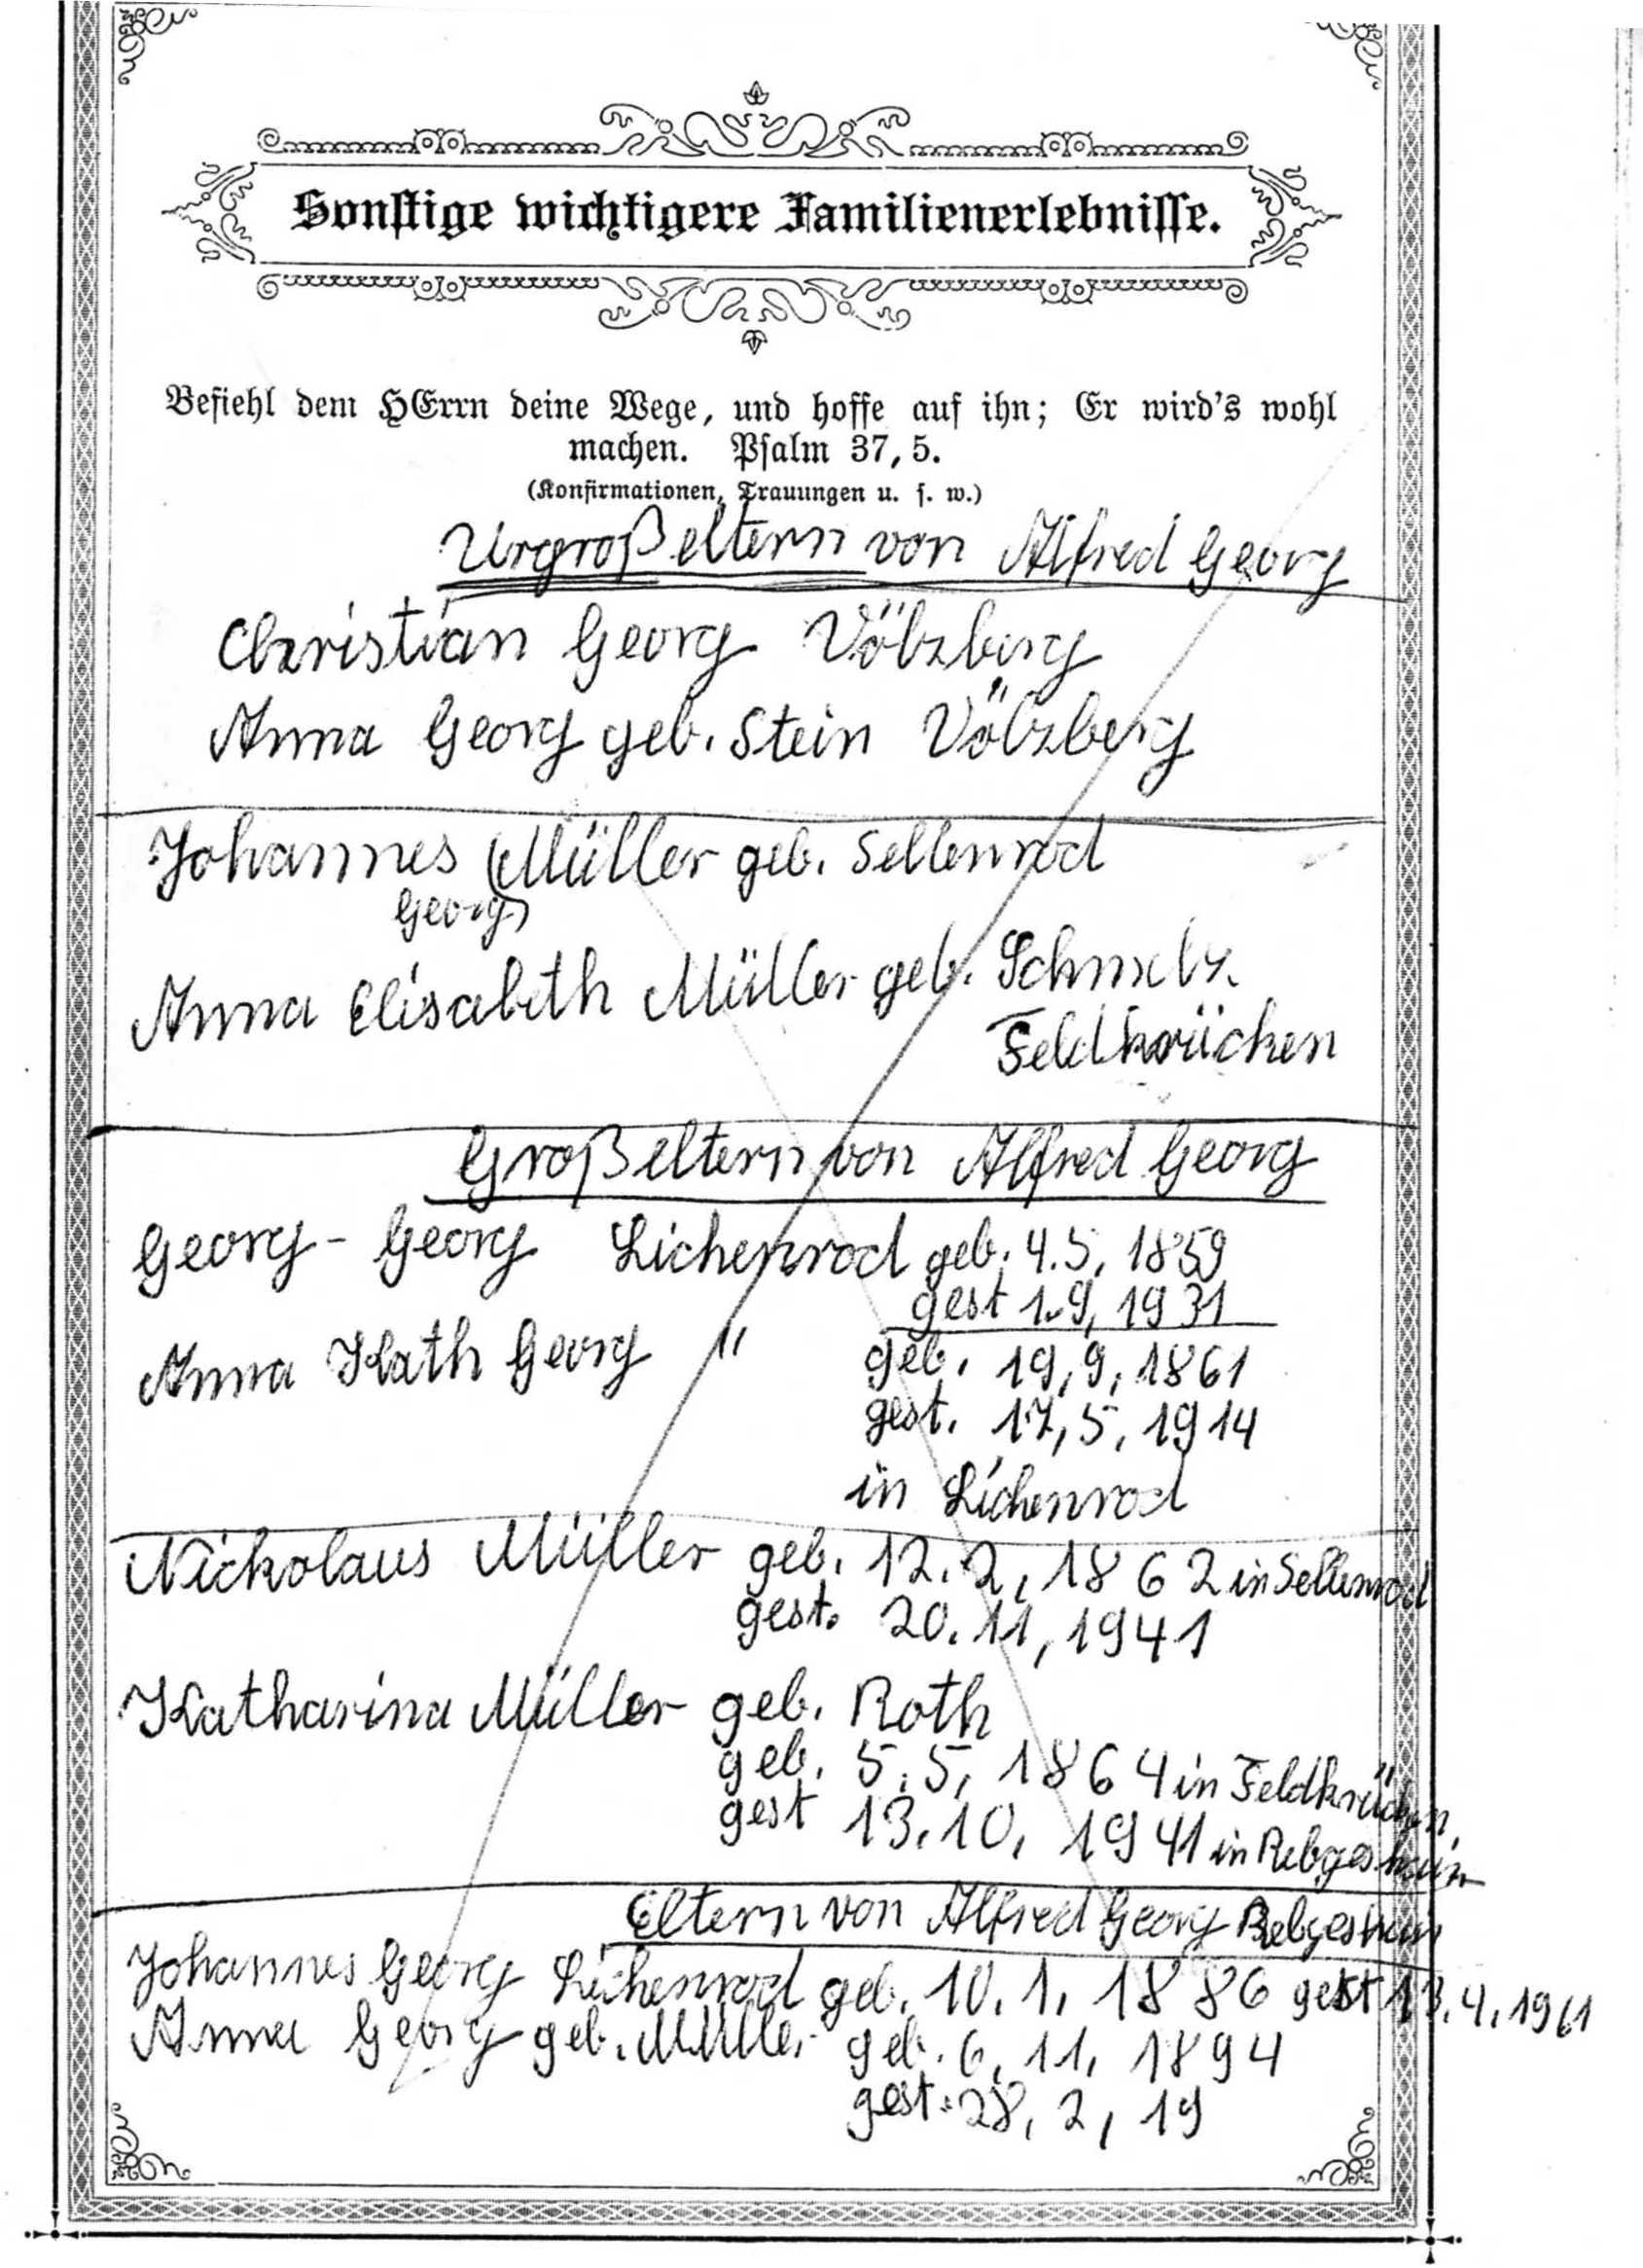 Sonstige wichtigere Familienerlebnisse.
Befiehl dem HErrn deine Wege, und hoffe auf ihn; Er wird's wohl
machen. Psalm 37, 5.
(Konfirmationen, Trauungen u. s. w.)
Urgroßeltern von Alfred Georg
Christian Georg Völzberg
Anna Georg geb. Stein Völzberg
Johannes (Müller geb. Sellenrod
Georg)
Anna Elisabeth Müller geb. Schmelz.
Feldkrücken
Großeltern von Alfred Georg
Georg - Georg Lichenrod geb. 4.5, 1859
gest 1.9, 1931
Anna Kath Georg " geb. 19,9, 1861
gest. 17,5, 1914
in Lichenrod
Nickolaus Müller geb. 12.2, 1862 in Sellenrod
gest. 20.11, 1941
Katharina Müller geb. Roth
geb. 5.5, 1864 in Feldkrücken,
gest 13.10, 1941 in Rebgeshain
Eltern von Alfred Georg Rebgeshain
Johannes Georg Lichenrod geb. 10.1, 1886 gest 13.4.1961
Anna Georg geb. Müller geb. 6.11, 1894
gest. 28, 2, 19